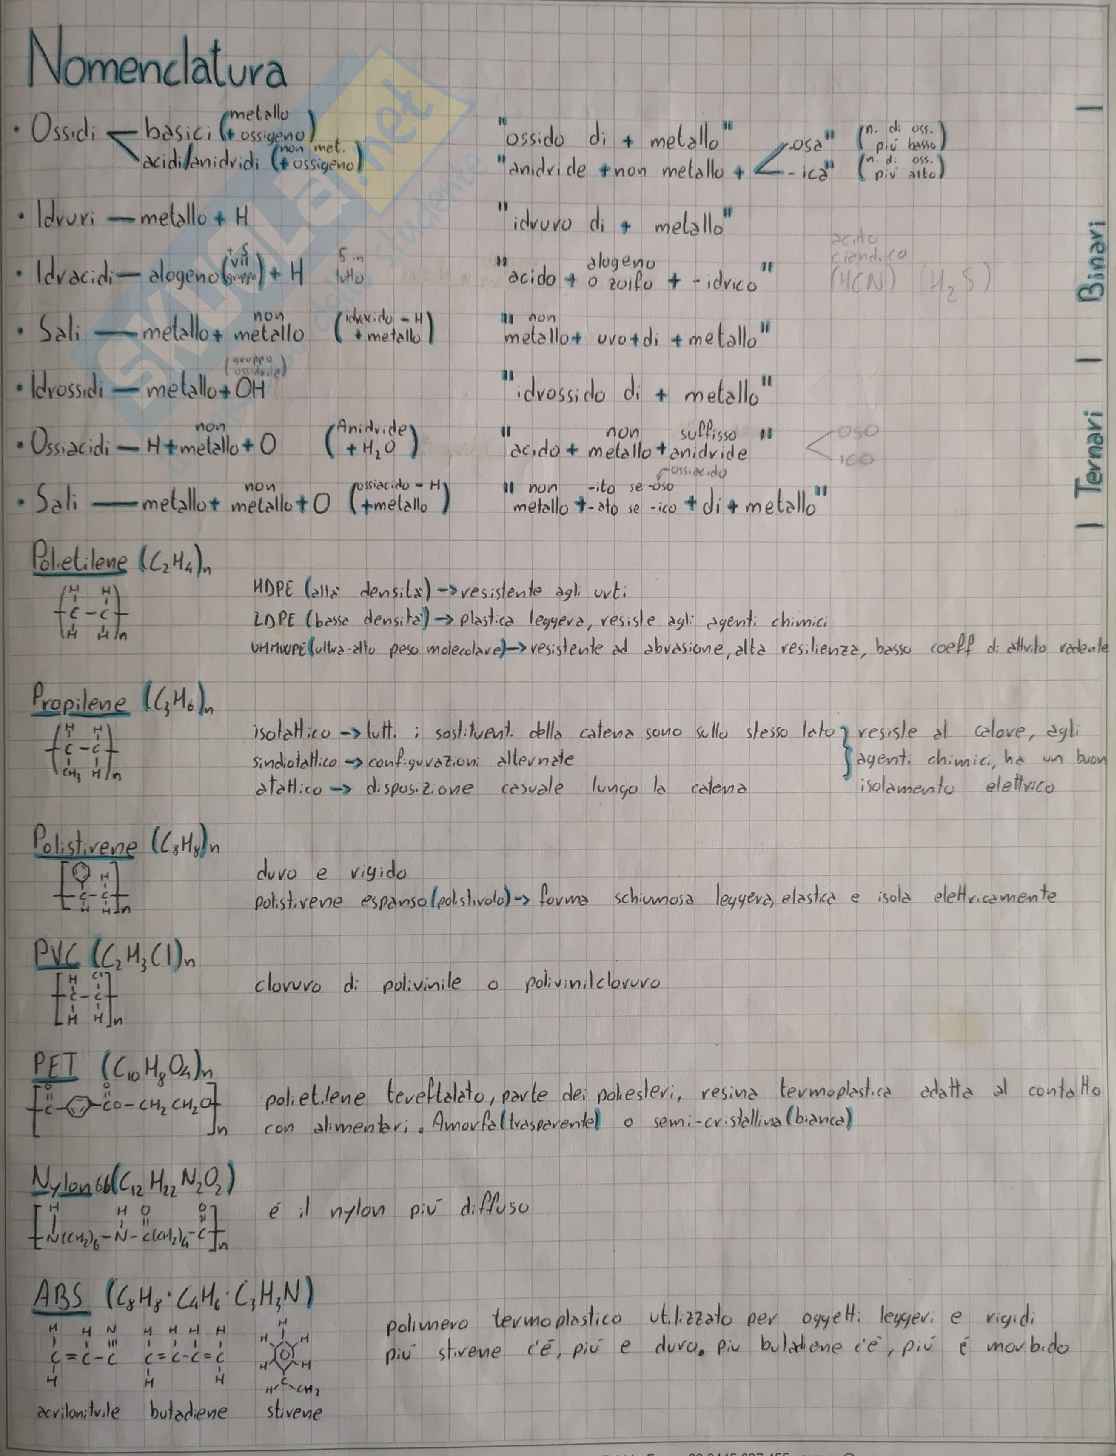 Nomenclatura
• Ossidi basici (metallo + ossigeno) "ossido di + metallo"
acidi/anidridi (non met. + ossigeno) "anidride + non metallo + -osa" (n. di oss. più basso) -ica" (n. di oss. più alto)
• Idruri — metallo + H "idruro di + metallo"
• Idracidi — alogeno (VII gruppo) + H "acido + alogeno o zolfo + -idrico" acido cianidrico (HCN) H₂S)
• Sali — metallo + non metallo (idracido - H + metallo) "non metallo + uro + di + metallo"
Binari
• Idrossidi — metallo + OH (gruppo ossidrile) "idrossido di + metallo"
• Ossiacidi — H + non metallo + O (Anidride + H₂O) "acido + non metallo + suffisso anidride" oso ico
• Sali — metallo + non metallo + O (ossiacido - H + metallo) "non metallo + -ito se -oso -ato se -ico + di + metallo" ossiacido
Ternari
Polietilene (C₂H₄)n
H H
C - C
H H n
HDPE (alta densità) → resistente agli urti
LDPE (bassa densità) → plastica leggera, resiste agli agenti chimici
UHMWPE (ultra-alto peso molecolare) → resistente ad abrasione, alta resilienza, basso coeff di attrito radente
Propilene (C₃H₆)n
H H
C - C
CH₃ H n
isotattico → tutti i sostituenti della catena sono sullo stesso lato
sindiotattico → configurazioni alternate
atattico → disposizione casuale lungo la catena
resiste al calore, agli
agenti chimici, ha un buon
isolamento elettrico
Polistirene (C₈H₈)n
H
C - C
H H n
duro e rigido
polistirene espanso (polistirolo) → forma schiumosa leggera, elastica e isola elettricamente
PVC (C₂H₃Cl)n
H Cl
C - C
H H n
cloruro di polivinile o polivinilcloruro
PET (C₁₀H₈O₄)n
O O
C CO - CH₂ CH₂O n
polietilene tereftalato, parte dei poliesteri, resina termoplastica adatta al contatto
con alimentari. Amorfa (trasparente) o semi-cristallina (bianca)
Nylon 66 (C₁₂H₂₂N₂O₂)
H H O O
N(CH₂)₆ - N - C(CH₂)₄ - C n
é il nylon più diffuso
ABS (C₈H₈ · C₄H₆ · C₃H₃N)
H H N H H H H H
C = C - C C = C - C = C H H
H H H H H
H C CH₂
acrilonitrile butadiene stirene
polimero termoplastico utilizzato per oggetti leggeri e rigidi
più stirene c'è, più e duro. più butadiene c'è, più é morbido